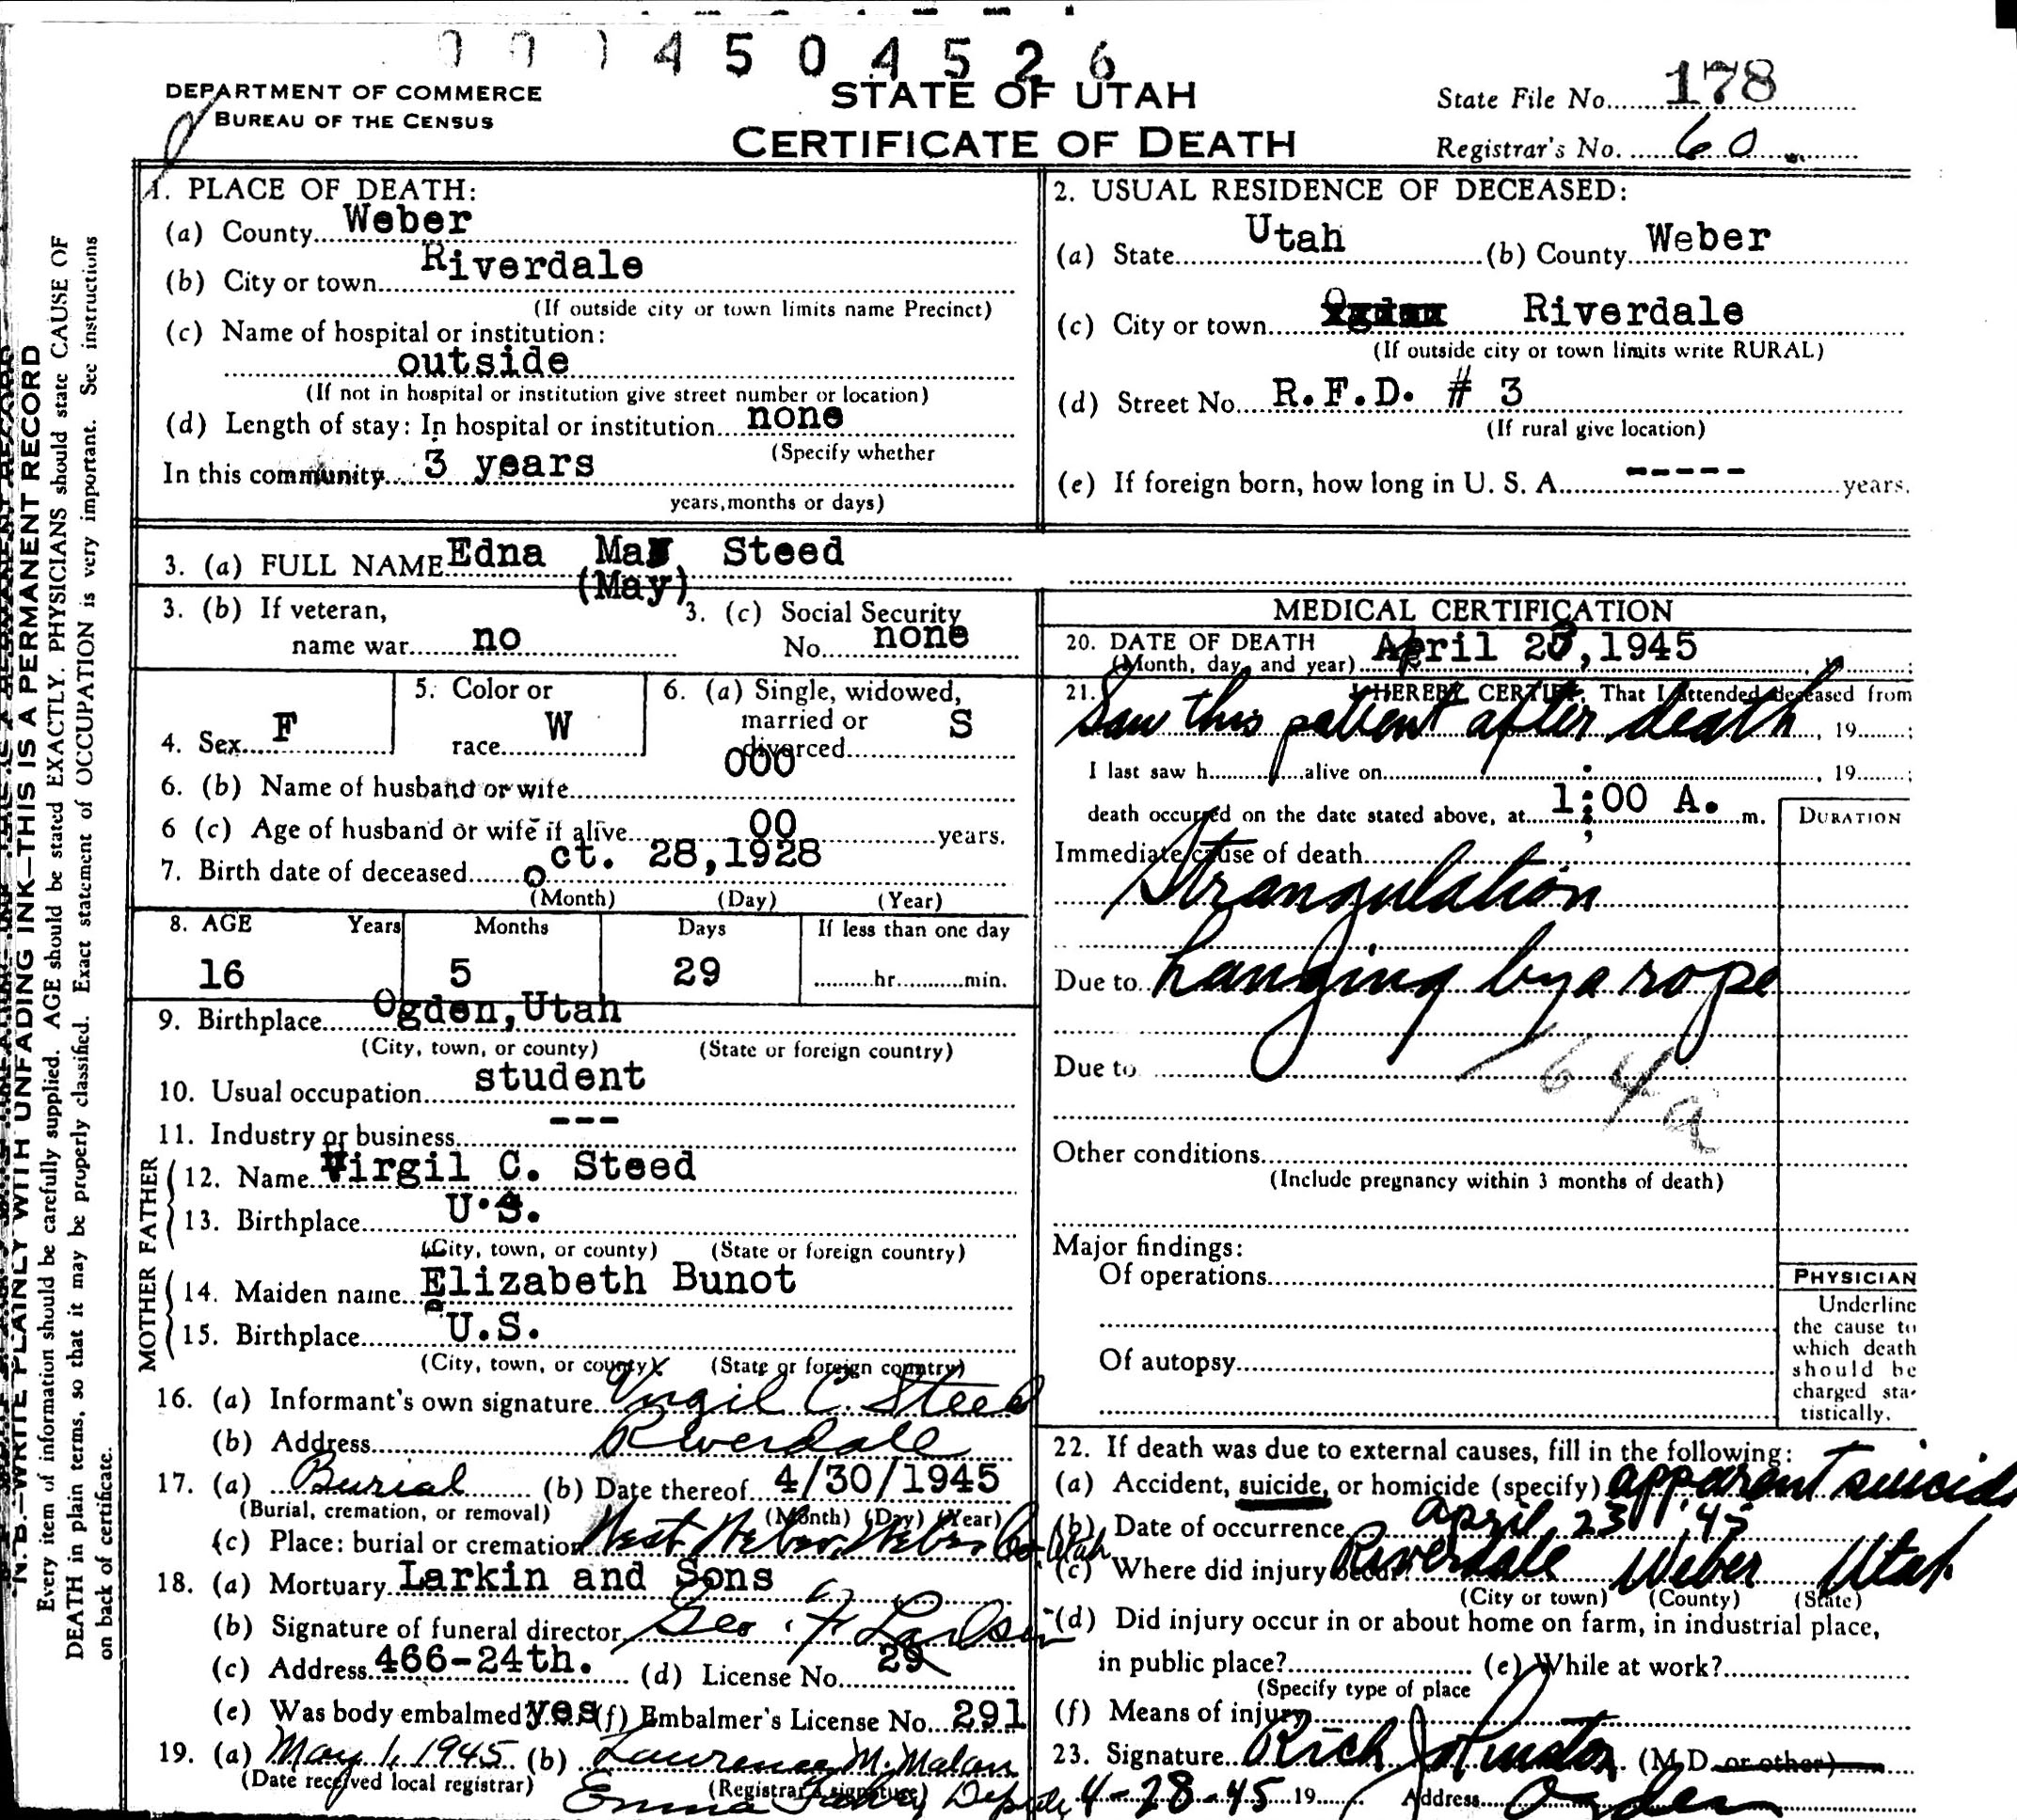 4 5 0 4 5 2 6
DEPARTMENT OF COMMERCE
BUREAU OF THE CENSUS
STATE OF UTAH
CERTIFICATE OF DEATH
State File No. 178
Registrar's No. 60
1. PLACE OF DEATH:
(a) County Weber
(b) City or town Riverdale
(If outside city or town limits name Precinct)
(c) Name of hospital or institution:
outside
(If not in hospital or institution give street number or location)
(d) Length of stay: In hospital or institution none
(Specify whether
In this community 3 years
years, months or days)
2. USUAL RESIDENCE OF DECEASED:
(a) State Utah (b) County Weber
(c) City or town Riverdale
(If outside city or town limits write RURAL)
(d) Street No. R.F.D. # 3
(If rural give location)
(e) If foreign born, how long in U. S. A. ----- years.
3. (a) FULL NAME Edna Steed
(May)
3. (b) If veteran,
name war no
3. (c) Social Security
No. none
4. Sex F
5. Color or
race W
6. (a) Single, widowed,
married or
divorced S
000
6. (b) Name of husband or wife
6 (c) Age of husband or wife if alive 00 years.
7. Birth date of deceased Oct. 28,1928
(Month) (Day) (Year)
8. AGE Years Months Days If less than one day
16 5 29 hr. min.
9. Birthplace Ogden,Utah
(City, town, or county) (State or foreign country)
10. Usual occupation student
11. Industry or business ---
FATHER
12. Name Virgil C. Steed
13. Birthplace U.S.
(City, town, or county) (State or foreign country)
MOTHER
14. Maiden name Elizabeth Bunot
15. Birthplace U.S.
(City, town, or county) (State or foreign country)
16. (a) Informant's own signature Virgil C. Steed
(b) Address Riverdale
17. (a) Burial (b) Date thereof 4/30/1945
(Burial, cremation, or removal) (Month) (Day) (Year)
(c) Place: burial or cremation West Weber, Weber Co. Utah
18. (a) Mortuary Larkin and Sons
(b) Signature of funeral director Geo. F Larkin
(c) Address 466-24th. (d) License No. 29
(e) Was body embalmed yes (f) Embalmer's License No. 291
19. (a) May 1, 1945 (b) Lawrence M. Malan
(Date received local registrar) (Registrar's signature)
Emma Deputy
MEDICAL CERTIFICATION
20. DATE OF DEATH
(Month, day, and year) April 23,1945
21. I HEREBY CERTIFY, That I attended deceased from
Saw this patient after death , 19 ;
I last saw h alive on , 19 ;
death occurred on the date stated above, at 1:00 A. m.
DURATION
Immediate cause of death
Strangulation
Due to hanging by a rope
Due to
164a
Other conditions
(Include pregnancy within 3 months of death)
Major findings:
Of operations
Of autopsy
PHYSICIAN
Underline
the cause to
which death
should be
charged sta-
tistically.
22. If death was due to external causes, fill in the following:
(a) Accident, suicide, or homicide (specify) apparent suicide
(b) Date of occurrence April 23, '45
(c) Where did injury occur? Riverdale Weber Utah
(City or town) (County) (State)
(d) Did injury occur in or about home on farm, in industrial place,
in public place? (e) While at work?
(Specify type of place
(f) Means of injury
23. Signature Rich Johnston (M.D. or other)
4-28-45 19 Address Ogden
N. B.—WRITE PLAINLY WITH UNFADING INK—THIS IS A PERMANENT RECORD
Every item of information should be carefully supplied. AGE should be stated EXACTLY. PHYSICIANS should state CAUSE OF
DEATH in plain terms, so that it may be properly classified. Exact statement of OCCUPATION is very important. See instructions
on back of certificate.